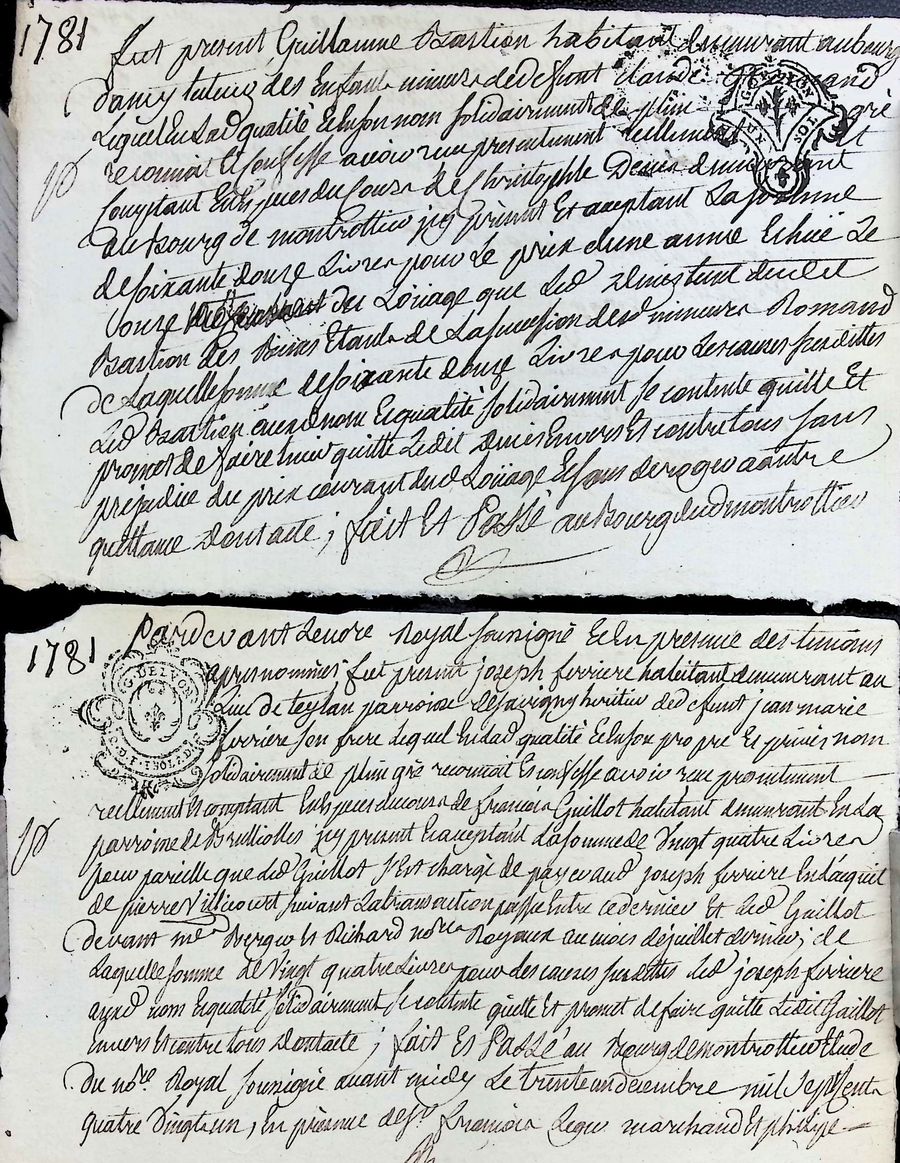 1781
fut present Guillaume Bastion habitant demeurant au bourg
d'ancy tuteur des Enfants mineurs de deffunt Claude Romand
Lequel en lad qualité & en son nom solidairement de plein gré
reconnoit & confesse avoir reçu presentement réellement et
Comptant En Especes du Cours de Christophle Denis demeurant
au bourg de montrottier icy présent Et aceptant La somme
de soixante douze Livres pour Le prix d'une année Echüe Le
onze du Loüage que Led Denis tient dudit
Bastion des Biens Etants de La succession desd mineurs Romand
de Laquelle somme de soixante douze Livres pour Les causes susdittes
Led Bastion auxd nom & qualité solidairement se contente quitte Et
promet de faire tenir quitte Ledit Denis Envers Et contre tous sans
préjudice du prix courant dud Loüage & sans deroger a autre
quittance Dont acte ; fait Et Passé au Bourg dud montrottier
1781
Pardevant Le nore Royal soussigné & En presence des temoins
apres nommés fut present joseph ferriere habitant demeurant au
Lieu de teylan parroisse de savigny heritier de deffunt jean marie
ferriere son frere Lequel En lad qualité & En son propre Et privés nom
solidairement de plein gré reconnoit Et confesse avoir reçu presentement
reellement Et comptant En Especes du cours de françois Guillot habitant demeurant En La
parroisse de Brullioles icy present & aceptant La somme de Vingt quatre Livres
pour pareille que Led Guillot s'Est chargé de payer aud joseph ferriere En L'acquit
de pierre Villicourt suivant La transaction passée Entre ce dernier Et Led Guillot
devant mes Berger Et Richard nores Royaux au mois de juillet dernier ; de
Laquelle somme de Vingt quatre Livres pour des causes susdittes Led joseph ferriere
auxd nom & qualité solidairement se contente quitte Et promet de faire quitte Ledit Guillot
envers Et contre tous Dont acte ; fait Et Passé au Bourg de montrottier Etude
Du nore Royal soussigné avant midy Le trente un decembre mil sept cent
quatre Vingt un, En présence de sr françois Leger marchand Et philipe